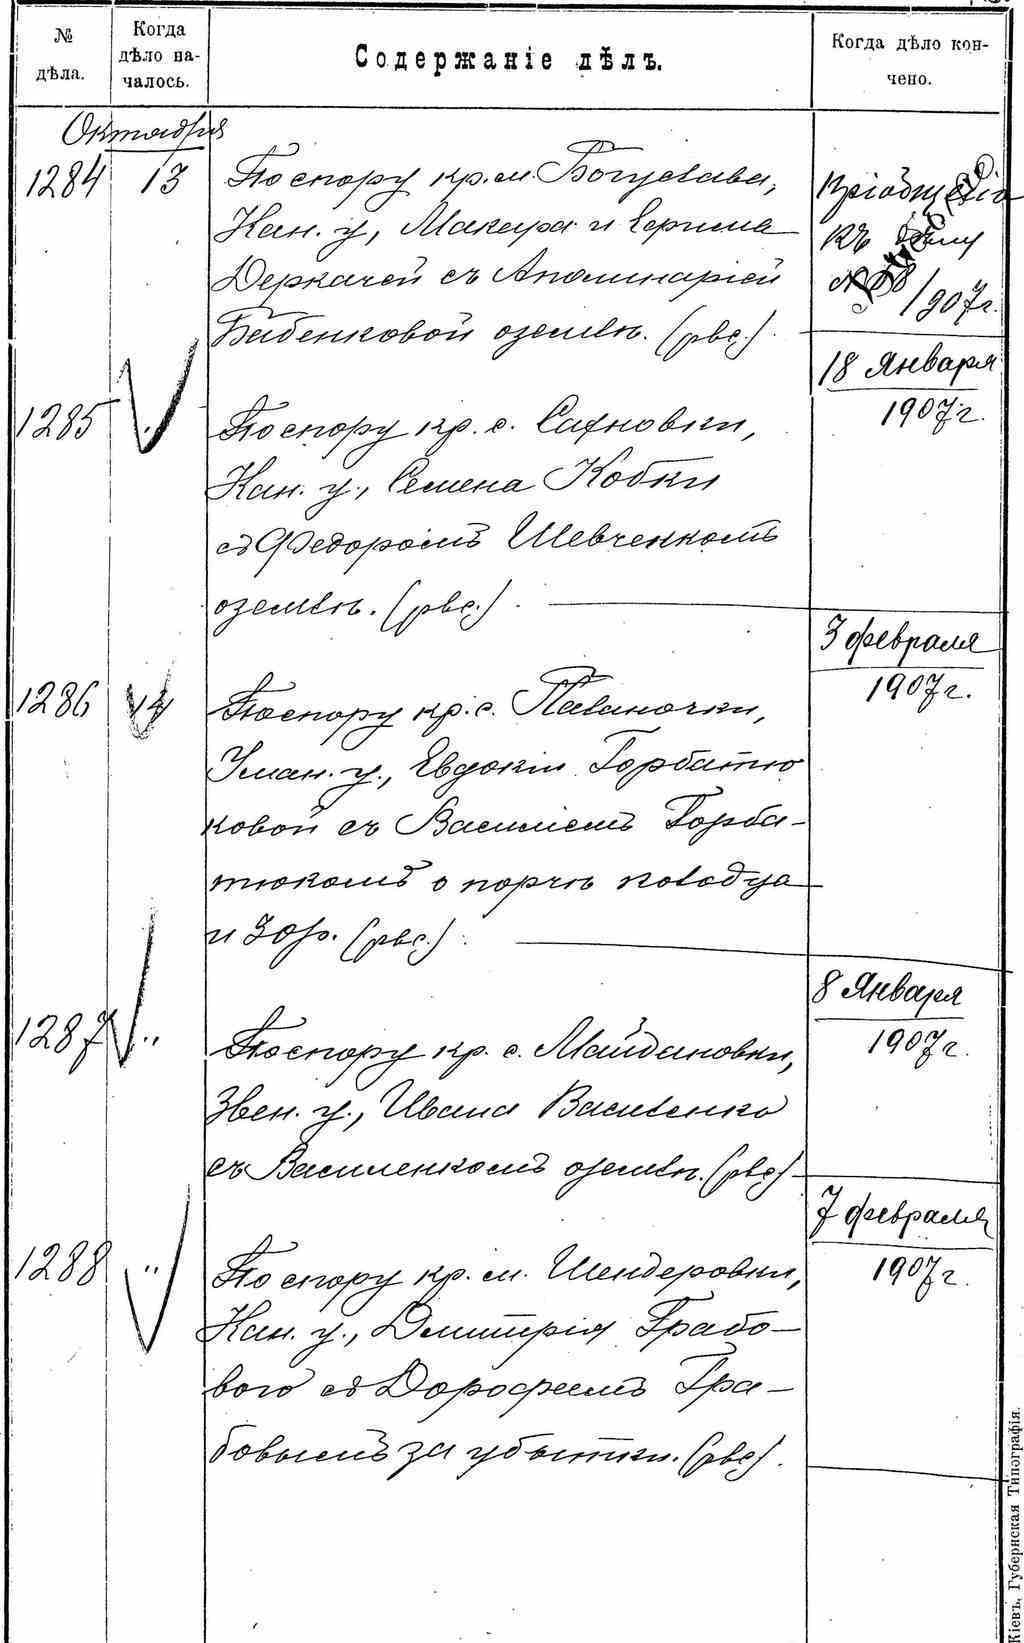 № дѣла.
Когда дѣло на-
чалось.
Содержаніе дѣлъ.
Когда дѣло кон-
чено.
Октября
1284
13
По спору кр. м. Богуслава,
Кан. у., Макара и Ефима
Деркачей съ Аполинаріей
Бабенковой о землѣ. (рвс.).
Пріобщено
къ дѣлу
/907 г.
1285
"
По спору кр. с. Сахновки,
Кан. у., Семена Кобки
съ Федоромъ Шевченкомъ
о землѣ. (рвс.).
18 Января
1907 г.
1286
14
По спору кр. с. Паланочки,
Уман. у., Евдокіи Горбатю
ковой съ Василіемъ Горба-
тюкомъ о порчѣ колодца
и 30 р. (рвс.).
3 февраля
1907 г.
1287
"
По спору кр. с. Майдановки,
Звен. у., Ивана Василенко
съ Василенкомъ о землѣ. (рвс)
8 Января
1907 г.
1288
"
По спору кр. м. Шендеровки,
Кан. у., Дмитрія Грабо-
вого съ Дорофеемъ Гра-
бовымъ за убытки. (рвс).
7 февраля
1907 г.
Кіевъ, Губернская Типографія.